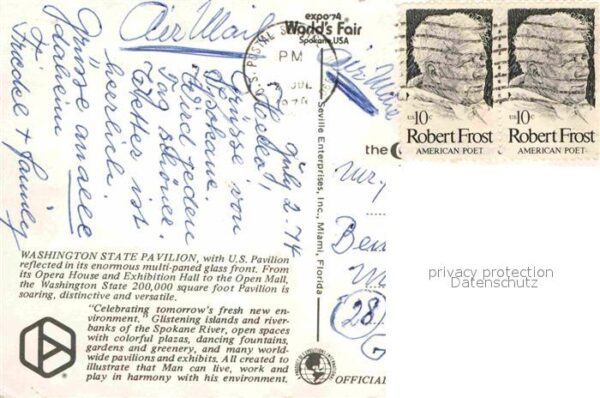 Air Mail
expo'74
World's Fair
Spokane, USA
POSTAL
PM
JUL
Air Mail
US 10c
Robert Frost
AMERICAN POET
US 10c
Robert Frost
AMERICAN POET
July 2-74
Grüsse von
Spokane.
Wird jeden
Tag schöner.
Wetter ist
herrlich.
Grüsse an alle
daheim
Friedel + family
Seville Enterprises, Inc., Miami, Florida
the
(28)
WASHINGTON STATE PAVILION, with U.S. Pavilion
reflected in its enormous multi-paned glass front. From
its Opera House and Exhibition Hall to the Open Mall,
the Washington State 200,000 square foot Pavilion is
soaring, distinctive and versatile.
"Celebrating tomorrow's fresh new en-
vironment." Glistening islands and river-
banks of the Spokane River, open spaces
with colorful plazas, dancing fountains,
gardens and greenery, and many world-
wide pavilions and exhibits. All created to
illustrate that Man can live, work and
play in harmony with his environment.
OFFICIAL
privacy protection
Datenschutz